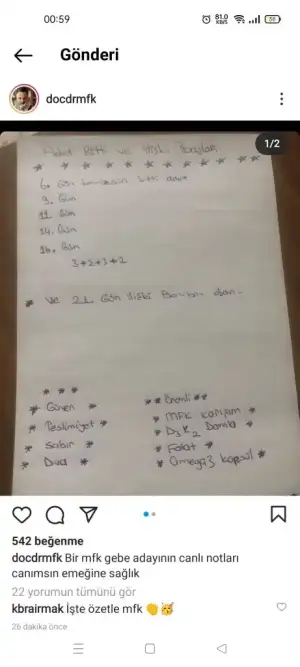 00:59
81.0 KB/S
58
Gönderi
docdrmfk
1/2
Adet Bitti ve İlişki Başlar
6. Gün
9. Gün
11. Gün
14. Gün
16. Gün
3+2+3+2
* ve 21. Gün ilişki
* * *
* Güven *
* Teslimiyet *
* Sabır *
* Dua *
** Önemli **
* MFK karışım *
* D3K2 Damla *
* Folat *
* Omega3 kapsül *
542 beğenme
docdrmfk Bir mfk gebe adayının canlı notları
canımsın emeğine sağlık
22 yorumun tümünü gör
kbrairmak İşte özetle mfk 👏🥳
26 dakika önce